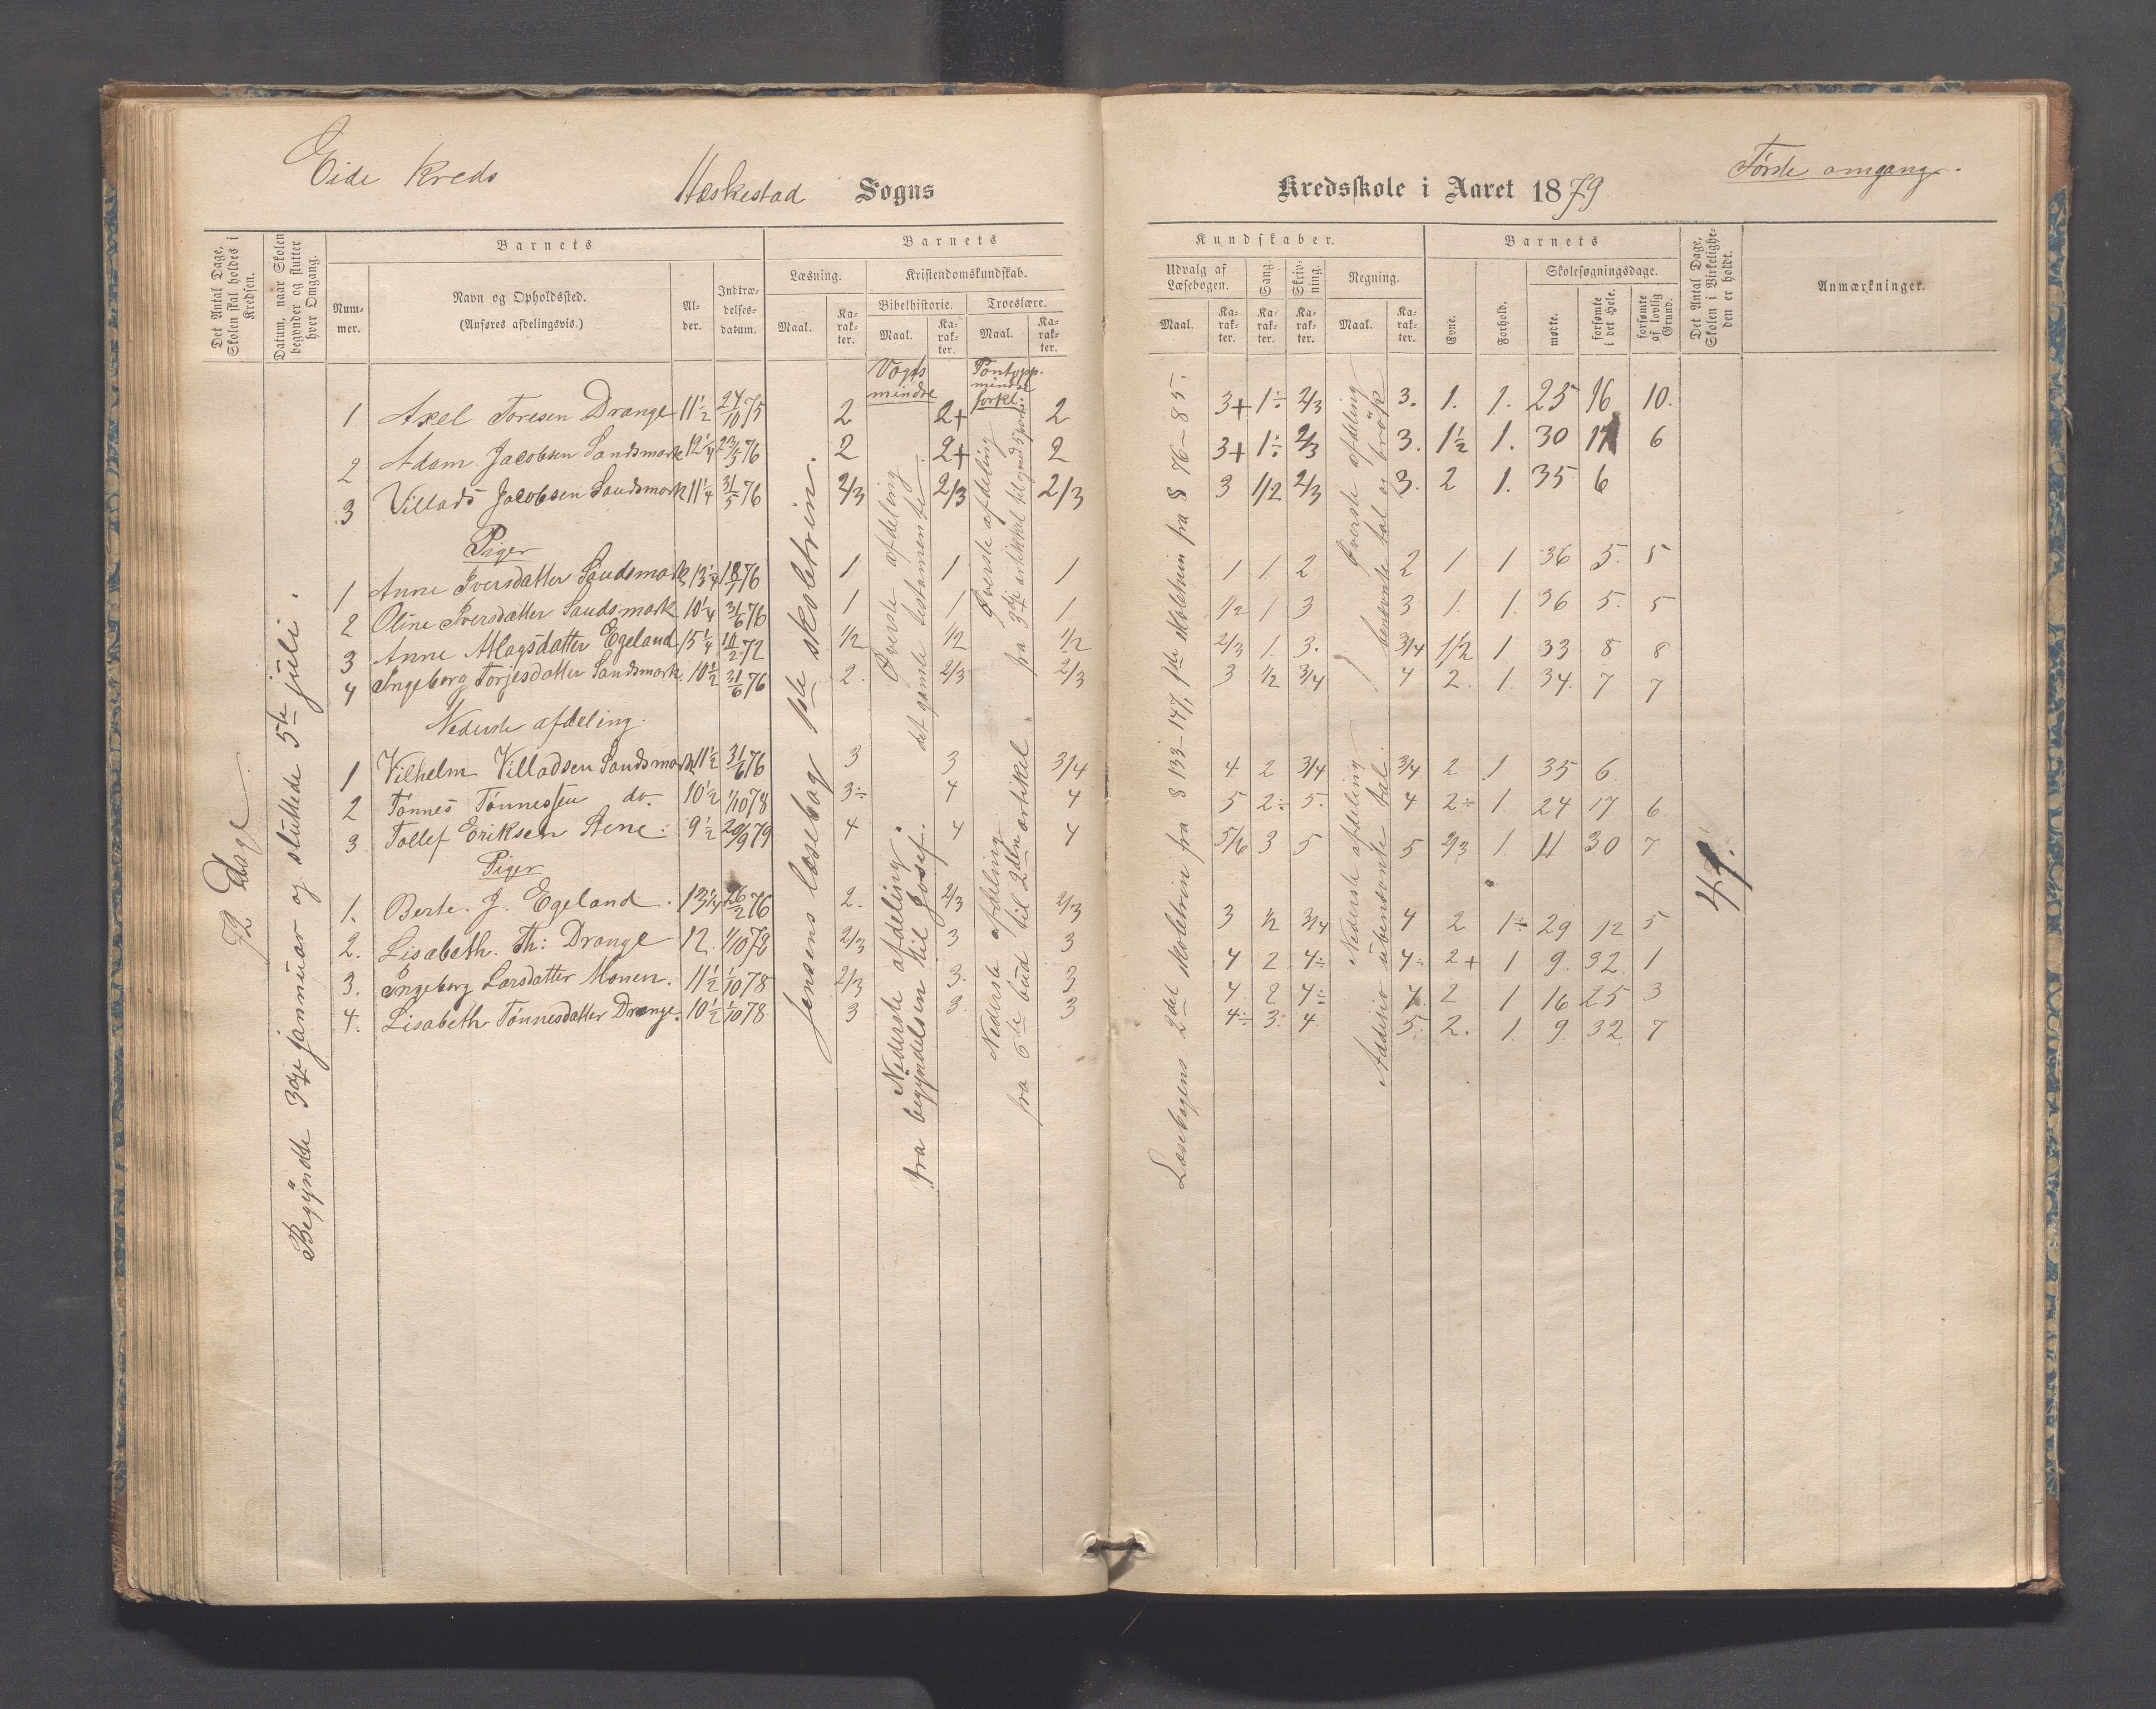 Eide Kreds Heskestad Sogns
Kredsskole i Aaret 1879 Første omgang.
Det Antal Dage, Skolen skal holdes i Kredsen.
Datum, naar Skolen begynder og slutter hver Omgang.
Barnets
Nummer.
Navn og Opholdssted.
(Anføres afdelingsvis.)
Alder.
Indtrædelsesdatum.
Barnets
Læsning.
Maal.
Karakter.
Kristendomskundskab.
Bibelhistorie.
Maal.
Karakter.
Troeslære.
Maal.
Karakter.
Kundskaber.
Udvalg af Læsebogen.
Maal.
Karakter.
Sang.
Karakter.
Skrivning.
Karakter.
Regning.
Maal.
Karakter.
Barnets
Evne.
Forhold.
Skolesøgningsdage.
mødte.
forsømte i det Hele.
forsømte af lovlig Grund.
Det Antal Dage, Skolen i Virkeligheden er holdt.
Anmærkninger.
72 Dage.
Begyndte 3dje januar og sluttede 5te juli.
Jensens læsebog 1ste skoletrin.
Vogts mindre
Øverste afdeling det gamle testamente.
Nederste afdeling fra begyndelsen til Josef.
Pontopp. mindre forkl.
Øverste afdeling
fra 3dje artikkel
Nederste afdeling
fra 6te bud til 2den artikel.
Læsebogens 2det skoletrin fra § 133-147, 1ste skoletrin fra § 76-85.
Øverste afdeling benævnte tal og brøk
Nederste afdeling Addition ubenævnte tal.
41.
1 Axel Toresen Drange 11½ 24/10 75 2 2+ 2 3+ 1÷ 2/3 3. 1. 1. 25 16 10.
2 Adam Jacobsen Sandsmark 12¼ 23/5 76 2 2+ 2 3+ 1÷ 2/3 3. 1½ 1. 30 11 6
3 Villads Jacobsen Sandsmark 11¼ 31/5 76 2/3 2/3 2/3 3 1/2 2/3 3. 2 1. 35 6
Piger
1 Anne Iversdatter Sandsmark 13¼ 18/1 76 1 1 1 1 1. 2 2 1 1 36 5. 5
2 Oline Iversdatter Sandsmark 10¼ 31/6 76 1 1 1 1/2 1 3 3 1. 1. 36 5. 5
3 Anne Atlagsdatter Egeland 15¼ 10/2 72 1/2 1/2 1/2 2/3 1. 3. 3/4 1½ 1 33 8 8
4 Ingeborg Torjesdatter Sandsmark. 10½ 31/6 76 2. 2/3 2/3 3 1/2 3/4 4 2. 1. 34. 7 7
Nederste afdeling.
1 Vilhelm Villadsen Sandsmark 11½ 31/6 76 3 3 3/4 4 2 3/4 3/4 2 1 35 6.
2 Tønnes Tønnessen do. 10½ 1/10 78 3÷ 4 4 5 2÷ 5. 4 2÷ 1. 24 17 6
3 Tollef Eriksen Stene. 9½ 20/9 79 4 4 4 5/6 3 5 5 2/3 1 11 30 7
Piger
1. Berte. J. Egeland. 13¼ 26/2 76 2. 2/3 2/3 3 1/2 3/4 4 2 1÷ 29 12 5
2. Lisabeth. Th: Drange 12. 1/10 78 2/3 3 3 4 2 4÷ 4÷ 2+ 1 9. 32. 1
3. Ingeborg Larsdatter Monen. 11½ 1/10 78 2/3 3. 3 4 2 4÷ 4. 2 1 16 25 3
4. Lisabeth Tønnesdatter Drange. 10½ 1/10 78 3 3. 3 4÷ 3. 4. 5. 2. 1. 9. 32 7